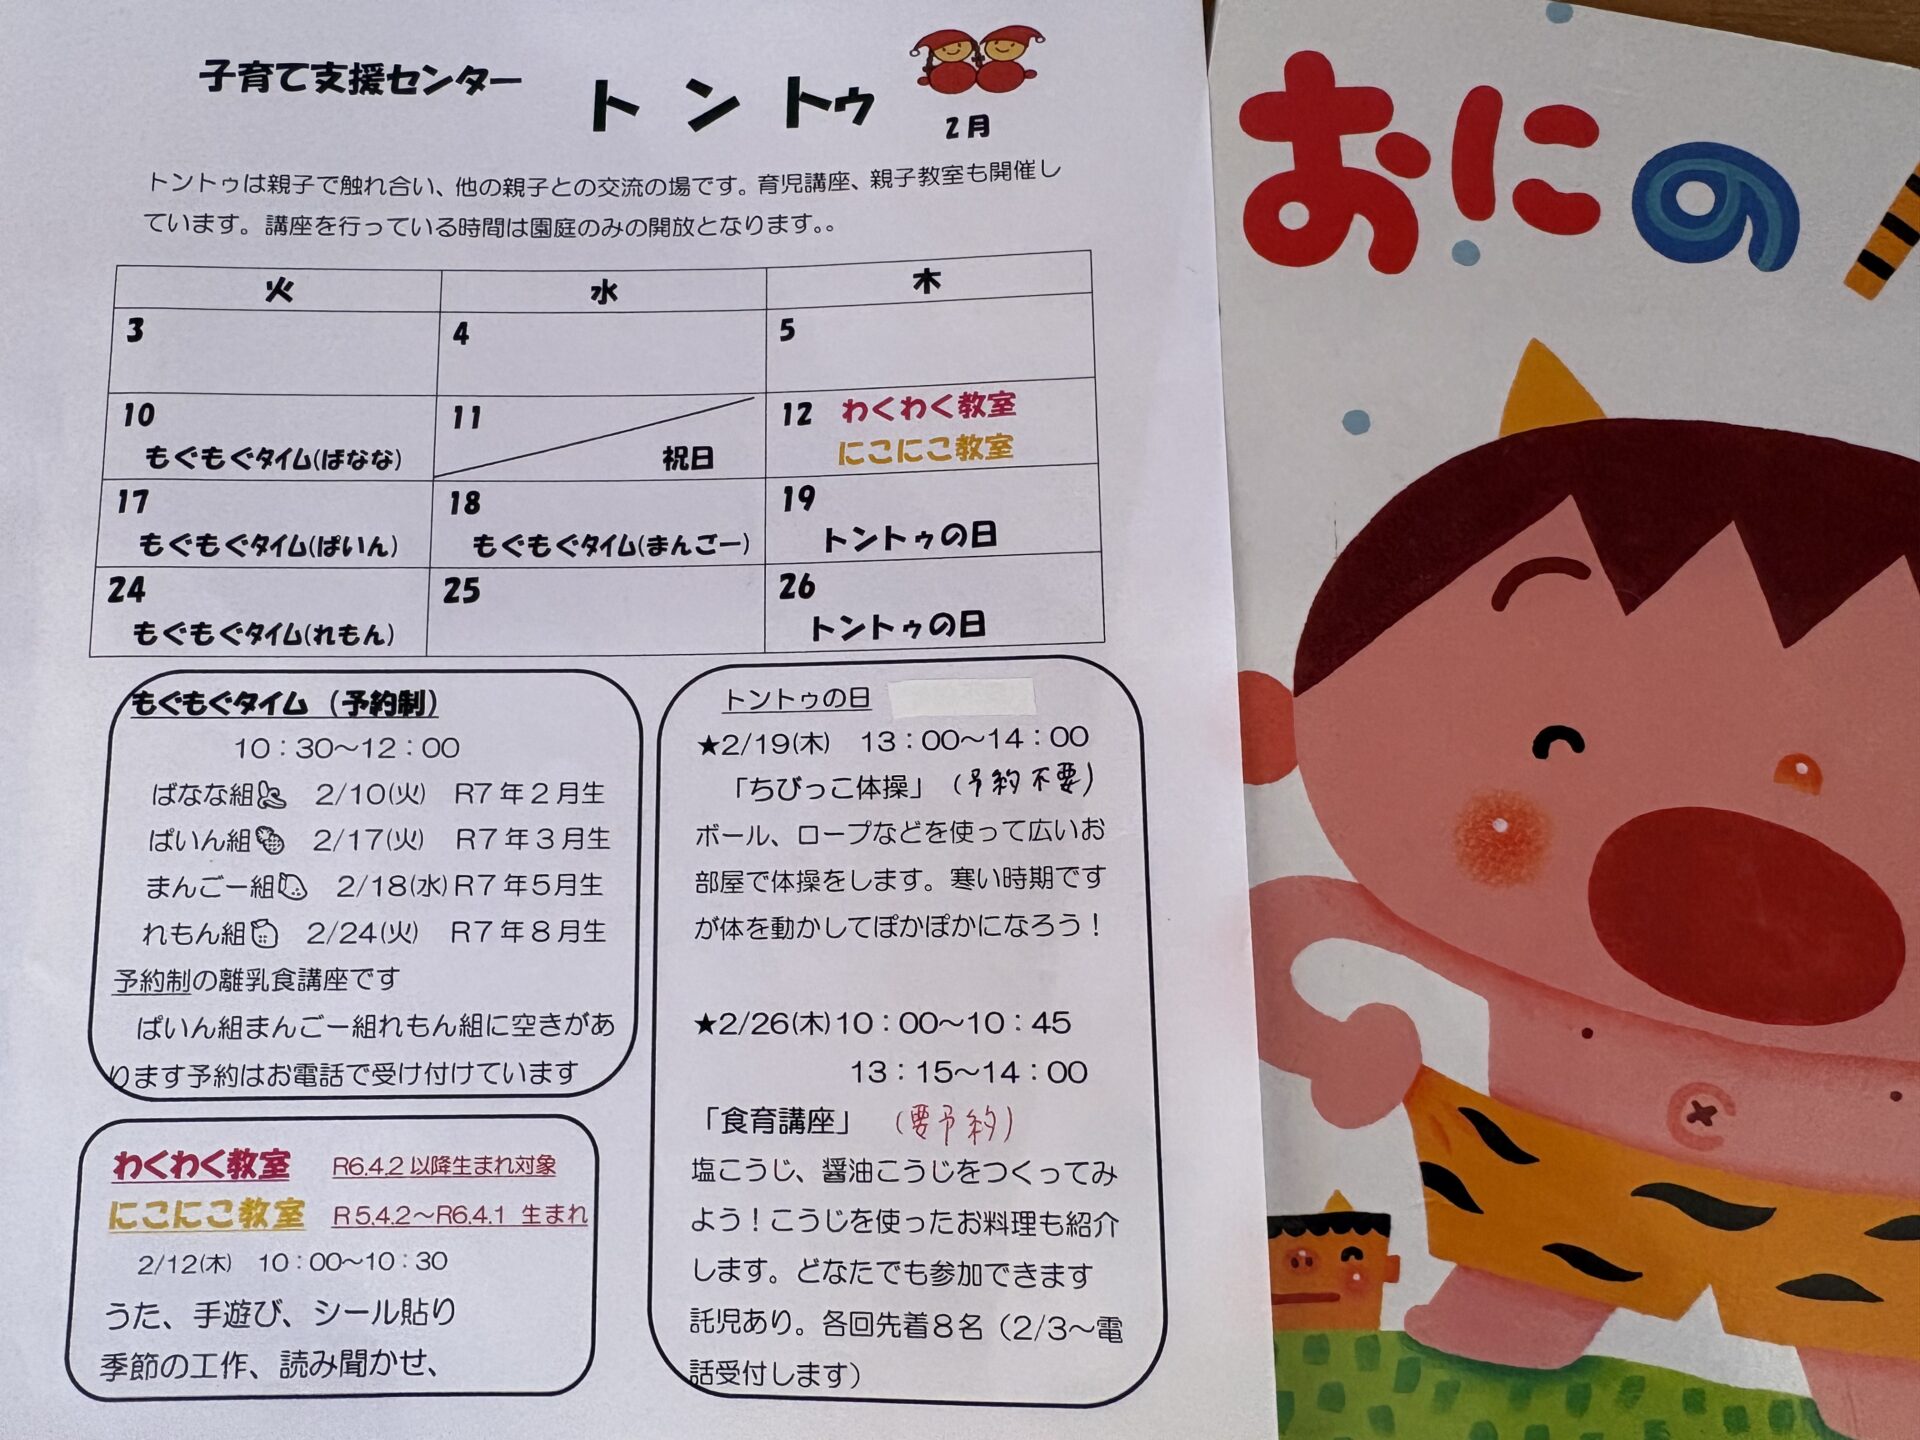 子育て支援センター トントゥ
2月
トントゥは親子で触れ合い、他の親子との交流の場です。育児講座、親子教室も開催し
ています。講座を行っている時間は園庭のみの開放となります。。
火 水 木
3 4 5
10 11 12 わくわく教室
もぐもぐタイム(ばなな) 祝日 にこにこ教室
17 18 19
もぐもぐタイム(ぱいん) もぐもぐタイム(まんごー) トントゥの日
24 25 26
もぐもぐタイム(れもん) トントゥの日
もぐもぐタイム（予約制）
10：30～12：00
ばなな組 2/10(火) R7年2月生
ぱいん組 2/17(火) R7年3月生
まんごー組 2/18(水) R7年5月生
れもん組 2/24(火) R7年8月生
予約制の離乳食講座です
ぱいん組まんごー組れもん組に空きがあ
ります予約はお電話で受け付けています
わくわく教室 R6.4.2以降生まれ対象
にこにこ教室 R5.4.2～R6.4.1 生まれ
2/12(木) 10：00～10：30
うた、手遊び、シール貼り
季節の工作、読み聞かせ、
トントゥの日
★2/19(木) 13：00～14：00
「ちびっこ体操」（予約不要）
ボール、ロープなどを使って広いお
部屋で体操をします。寒い時期です
が体を動かしてぽかぽかになろう！
★2/26(木)10：00～10：45
13：15～14：00
「食育講座」（要予約）
塩こうじ、醤油こうじをつくってみ
よう！こうじを使ったお料理も紹介
します。どなたでも参加できます
託児あり。各回先着8名（2/3～電
話受付します）
おにの